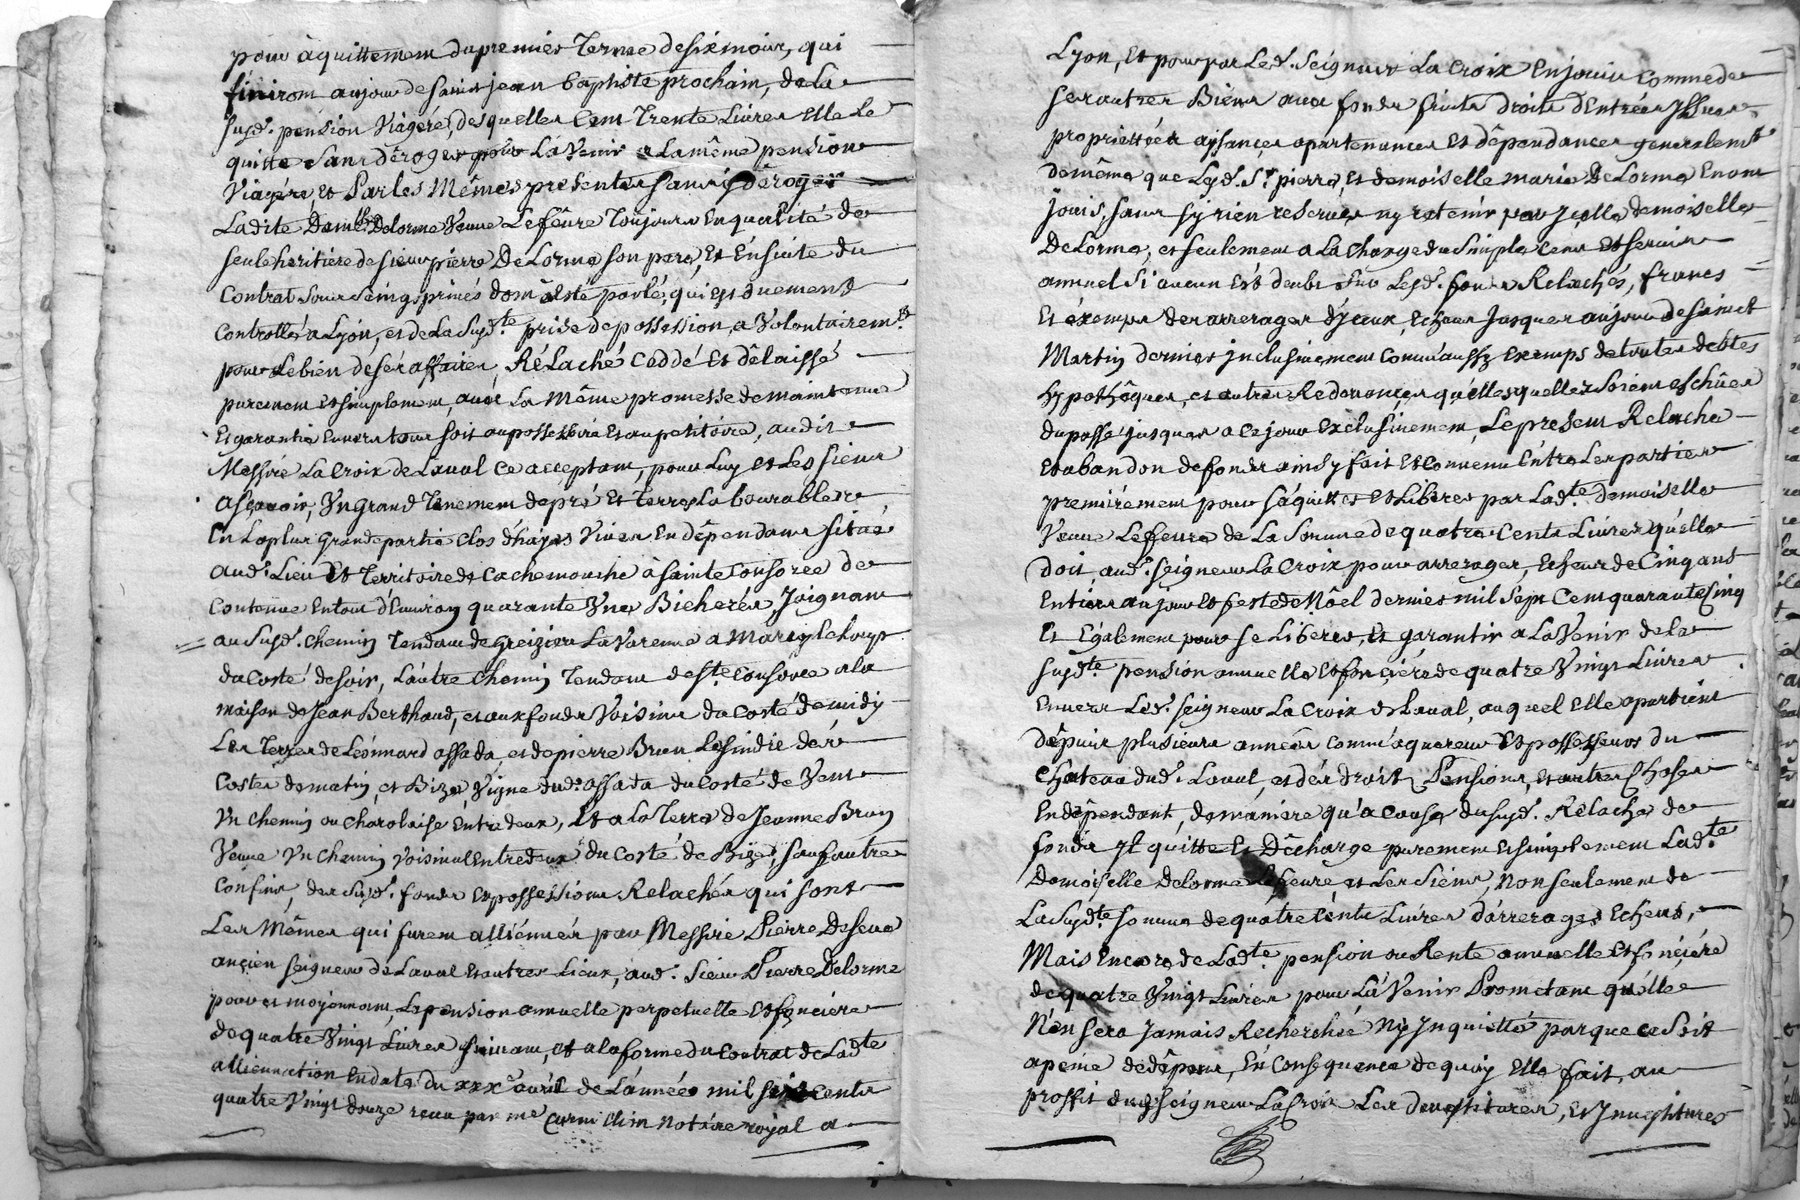 pour àquittement du premier Terme de six mois, qui
finiront au jour de saint jean baptiste prochain, de la
susd. pension viagére, desquelles Cent Trente Livres elle le
quitte sans déroger pour La venir a la même pension
viagére, et Par les Mêmes presentes sans y déroger
Ladite Dem.lle Delorme Veuve Lefeûre Toujours en qualité de
seule heritiére de sieur pierre De Lorme son pere, et Ensuite du
Contrat sous seings privés dont â esté parlé, qui est duement
Controllé a Lyon, et de La susd.te prise de possession, a volontairem.t
pour Le bien de sés affaires, Rélaché Ceddé Et délaissé
purement et simplement, avec La Même promesse de maintenue
Et garantie envers tous soit au possessoire Et au petitoire, audit
Messire La Croix de Laval ce acceptant, pour Luy et Les siens
asçavoir, Un grand Tenement de pré Et Terres Labourables
En La plus grande partie clos d'hayes vives En dépendant situé
aud. Lieu Et Territoire de Cachemouche à sainte Consorce de
Contenue En tout d'Environ quarante Une Bicherés Joignant
au susd. chemin Tendant de Greizieu La Varenne a Marcy le Loup
du costé de soir, L'autre Chemin Tendant de S.te Consorce a la
maison de Jean Berthaud, et aux fonds voisins du Costé de midy
Les Terres de Léonnard assada, et de pierre Brun
Costés de matin, et Bize, vigne dud. assada du Costé de Vent
Un chemin ou Charolaise entre deux, Et a La Terre de Jeanne Brun
Veuve Un chemin voisinal Entre deux du Costé de Bize, sauf autre
Confins, des susd. fonds et possessions Relachés qui sont
Les Mêmes qui furent alliénnés par Messire Pierre De seve
ançien seigneur de Laval et autres Lieux, aud. sieur Pierre Delorme
pour et moyennant, La pension annuelle perpetuelle et fonciere
de quatre vingt Livres suivant, et a la forme du Contrat de Lad.te
alliennation en datte du xxx.e avril de L'année mil six cents
quatre vingt douze receu par me notaire royal a
Lyon, Et pour par Led. seigneur La Croix En jouir comme de
ses autres Biens avec fonds fruits droits d'Entrées Issues
proprietées aysances apartenances Et dépendances generalem.t
de même que Led. S.r pierre, et demoiselle marie De Lorme En ont
jouis, sans s'y rien reserver ny retenir par Icelle demoiselle
De Lorme, et seulement a La Charge du simple Cens Et servis
annuel si aucun Est deubt sur Lesd. fonds Relachés, francs
Et éxempts des arrerages d'Iceux, Echeus Jusques au jour de saint
Martin dernier jnclusivement comm'aussy Exempts de toutes débtes
hypothêques, et autres Redevançes qu'elles quelles soient eschûes
du passé jusques a Ce jour Exclusivement, Le present Relache
Et abandon de fonds ainsy fait Et Convenu Entre Les parties
premiérement pour s'aquitter et Liberer par Lad.te demoiselle
veuve Lefeure de La Somme de quatre Cents Livres qu'elle
doit aud. seigneur La Croix pour arrerages, Echeus de Cinq ans
Entiers au jour et feste de Nôel dernier mil sept Cent quarante Cinq
Et Egalement pour se Liberer, et garantir a La Venir de La
susd.te pension annuelle et fonciére de quatre Vingt Livres
Envers Led. seigneur La Croix de Laval, auquel elle apartient
dépuis plusieurs années comm'aquereur Et possesseur du
Chateau dud. Laval, et dés droits Pensions, et autres choses
En dépendant, de maniére qu'a Cause du susd. Relache de
fonds Il quitte Et Décharge purement et simplement Lad.te
Demoiselle Delorme Lefeure, et Les siens, Non seulement de
La susd.te somme de quatre Cents Livres d'arrerages Echeus,
Mais Encore de Lad.te pension ou Rente annuelle et fonciére
de quatre Vingt Livres pour La Venir Promettant qu'elle
N'en sera Jamais Recherchée Ny Inquiettée par que ce soit
a peine de dépens, En Consequence de quoy Elle fait, au
proffit dud. seigneur La Croix Les devestitures, et Investitures